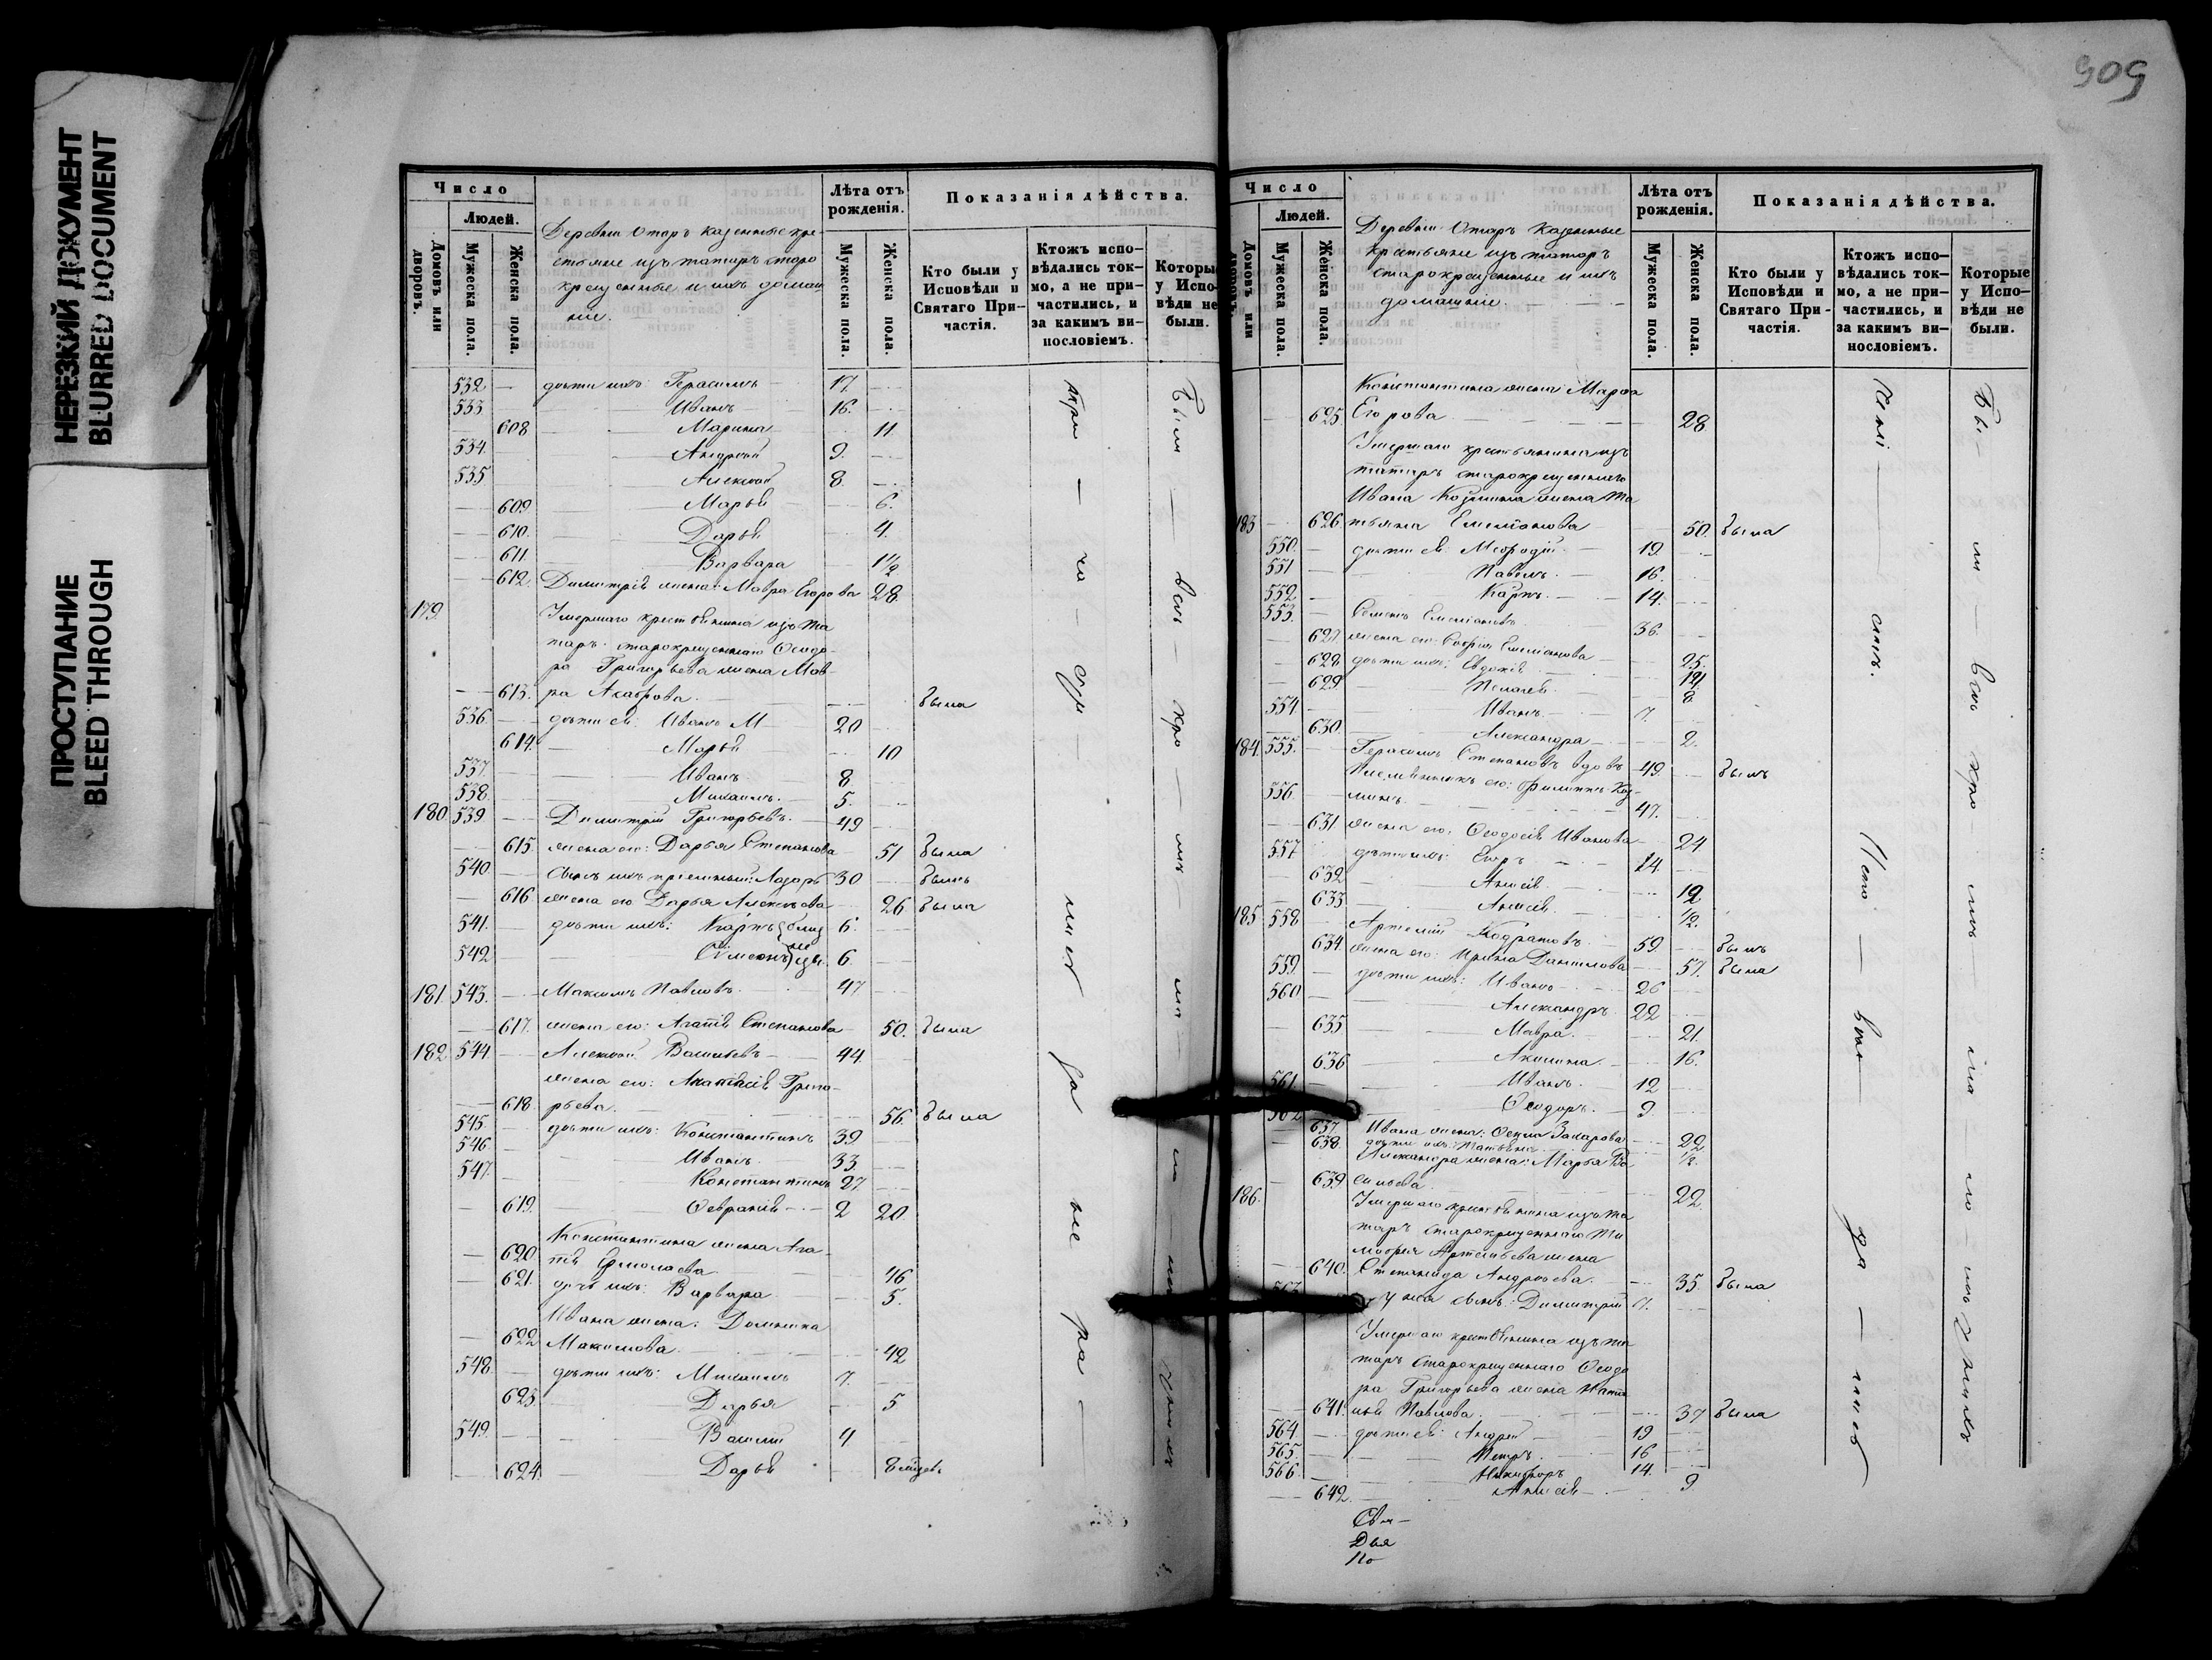 НЕРЕЗКИЙ ДОКУМЕНТ
BLURRED DOCUMENT
ПРОСТУПАНИЕ
BLEED THROUGH
Число
Людей.
Домовъ или дворовъ.
Мужеска пола.
Женска пола.
Деревни Отаръ казенные кре-
стьяне изъ татаръ старо
крещенные и ихъ домаш
ніе.
Лѣта отъ рожденія.
Мужеска пола.
Женска пола.
Показанія дѣйства.
Кто были у Исповѣди и Святаго При-частія.
Ктожъ испо-вѣдались ток-мо, а не при-частились, и за какимъ ви-нословіемъ.
Которые у Испо-вѣди не были.
532 — дѣти ихъ: Герасимъ — 17.
533 Иванъ — 16.
608 Марина 11.
534. Андрей 9.
535 Алексѣй 8.
609. Марья 6.
610. Дарья 4.
611. Варвара 1½
612. Димитрія жена: Мавра Егорова 28.
179. Умершаго крестьянина изъ та
таръ старокрещеннаго Ѳеодо-
ра Григорьева жена Мав-
613. ра
была
536. дѣти ея: Иванъ 20
614. Марья 10
537. Иванъ 8
538. Михаилъ 5.
180. 539 Димитрій Григорьевъ 49
615. жена его: Дарья Степанова 51 была
540. Сынъ ихъ пріемный: Лазарь 30 былъ
616. жена его Дарья Алексѣева 26 была
541. дѣти ихъ: Карпъ близ 6.
542 Симеонъ не цы. 6.
181. 543. Максимъ Павловъ 47
617. жена его: Агапія Степанова 50. была
182. 544 Алексѣй Васильевъ 44
жена его: Анастасія Григо-
618. рьева. 56. была
545. дѣти ихъ: Константинъ 39
546. Иванъ 33.
547. Константинъ 27.
619. Ѳевронія 2 20.
Константина жена Ага-
620. пія Ермолаева 46
621. дочь ихъ: Варвара 5.
Ивана жена: Домника
622 Максимова 42
548. дѣти ихъ: Михаилъ 7.
623. Дарья 5
549. Василій 4
624. Дарья 8 мѣсяцевъ
909
Число
Людей.
Домовъ или дворовъ.
Мужеска пола.
Женска пола.
Деревни Отаръ казенные
крестьяне изъ татаръ
старокрещенные и ихъ
домашніе.
Лѣта отъ рожденія.
Мужеска пола.
Женска пола.
Показанія дѣйства.
Кто были у Исповѣди и Святаго При-частія.
Ктожъ испо-вѣдались ток-мо, а не при-частились, и за какимъ ви-нословіемъ.
Которые у Испо-вѣди не были.
Константина жена: Марѳа
625. Егорова 28.
Умершаго крестьянина изъ
татаръ старокрещеннаго
Ивана Козмина жена Та
183 626. тьяна Емеліанова 50. была
550. дѣти ея: Меѳодій 19.
551 Павелъ 16.
552 Карпъ 14.
553. Семенъ Емеліановъ 36.
627. жена его: Софія Емеліанова 25.
628 дѣти ихъ: Евдокія 12.
629 Пелагея 8.
554. Иванъ 7.
630. Александра 2.
184. 555. Герасимъ Степановъ вдовъ 49. былъ
Племянникъ его: Филиппъ Коз-
556. минъ 47.
631 жена его: Ѳеодосія Иванова 24
557 дѣти ихъ: Егоръ 14.
632 Анисія 12
633 Анисія ½.
185. 558 Артемій Кодратовъ 59. былъ
634. жена его: Ирина Данилова 57. была
559. дѣти ихъ: Иванъ 26
560 Александръ 22
635 Мавра 21.
636 Акилина 16.
561. Иванъ 12
562 Ѳеодоръ 9.
637 Ивана жена: Захарова 22
638. дѣти ихъ: Татьяна ½.
Александра жена: Марья Ва
639 сильева 22.
186. Умершаго крестьянина изъ та
таръ старокрещеннаго Ти
моѳея Артемьева жена
640. Степанида Андреева 35. была
563 у ней сынъ: Димитрій 7.
Умершаго крестьянина изъ та
таръ старокрещеннаго Ѳеодо
ра Григорьева жена Ната
641. лья Павлова 37 была
564. дѣти ея: Андрей 19
565. Петръ 16
566. Никифоръ 14.
642. Анисія 9
Свя-
Дья
По